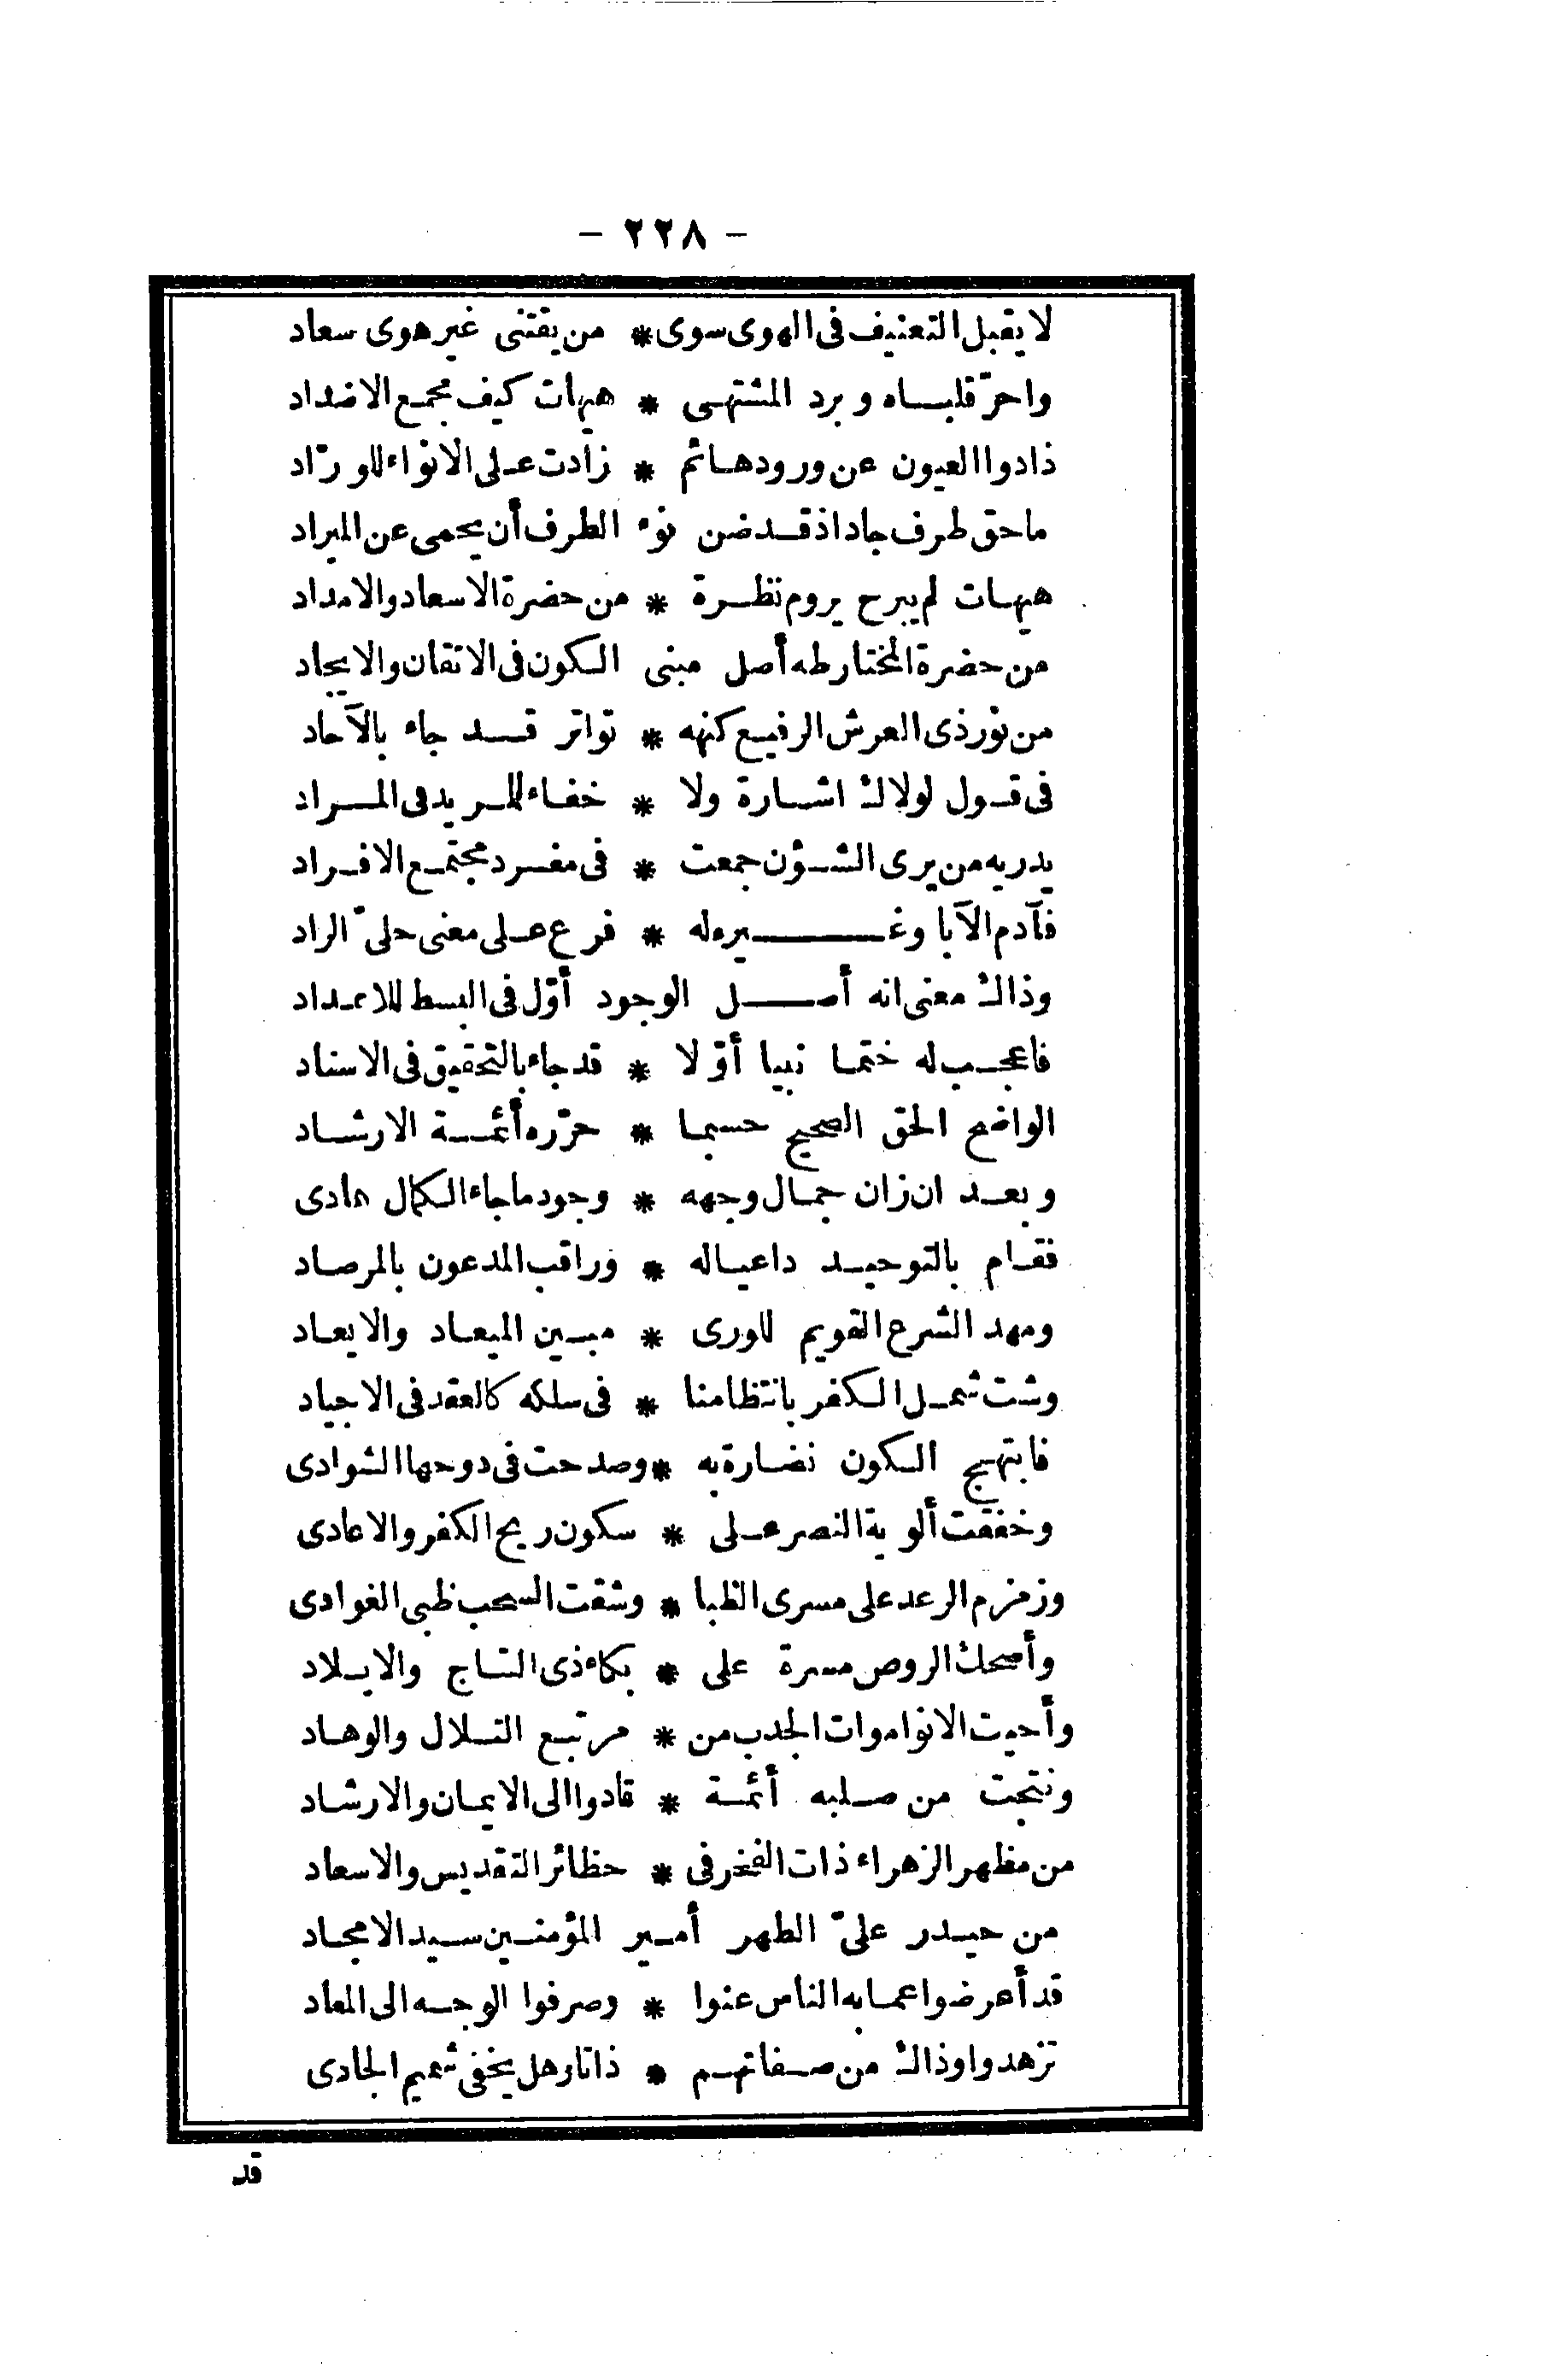 - ٢٢٨ -
لا يقبل التعنيف فى الهوى سوى * من يقتنى غير هوى سعاد
واحرّ قلباه وبرد المشتهى * هيهات كيف مجمع الاضداد
ذادوا العيون عن ورود هائم * زادت على الانواء للورّاد
ما حق طرف جاد اذ قد ضن نوء الطرف أن يحمى عن الميراد
هيهات لم يبرح يروم نظرة * من حضرة الاسعاد والامداد
من حضرة المختار طه أصل مبنى الكون فى الاتقان والايجاد
من نور ذى العرش الرفيع كنهه * تواتر قد جاء بالآحاد
فى قول لولاك اشارة ولا * خفاء للمريد فى المراد
يدريه من يرى الشؤن جمعت * فى مفرد مجتمع الافراد
فآدم الآبا وغيره له * فرع على معنى حلىّ الراد
وذاك معنى انه أصل الوجود أوّل فى البسط للاعداد
فاعجب له ختما نبيا أوّلا * قد جاء بالتحقيق فى الاسناد
الواضح الحق الصحيح حسبما * حرّره أئمة الارشاد
وبعد ان زان جمال وجهه * وجود ما جاء الكمال هادى
فقام بالتوحيد داعيا له * وراقب المدعون بالمرصاد
ومهد الشرع القويم للورى * مبين الميعاد والايعاد
وشت شمل الكفر بانتظامنا * فى سلكه كالعقد فى الاجياد
فابتهج الكون نضارة به * وصدحت فى دوحها الشوادى
وخفقت ألوية النصر على * سكون ريح الكفر والاعادى
وزمزم الرعد على مسرى الظبا * وشقت السحب ظبى الغوادى
وأضحك الروض مسرة على * بكاء ذى التاج والابلاد
وأحيت الانواموات الجدب من * مرتبع التلال والوهاد
ونتجت من صلبه أئمة * قادوا الى الايمان والارشاد
من مظهر الزهراء ذات الفخر فى * حظائر التقديس والاسعاد
من حيدر علىّ الطهر أمير المؤمنين سيد الامجاد
قد أعرضوا عما به الناس عنوا * وصرفوا الوجه الى المعاد
تزهدوا وذاك من صفاتهم * ذاتا وهل يخفى شميم الجادى
قد